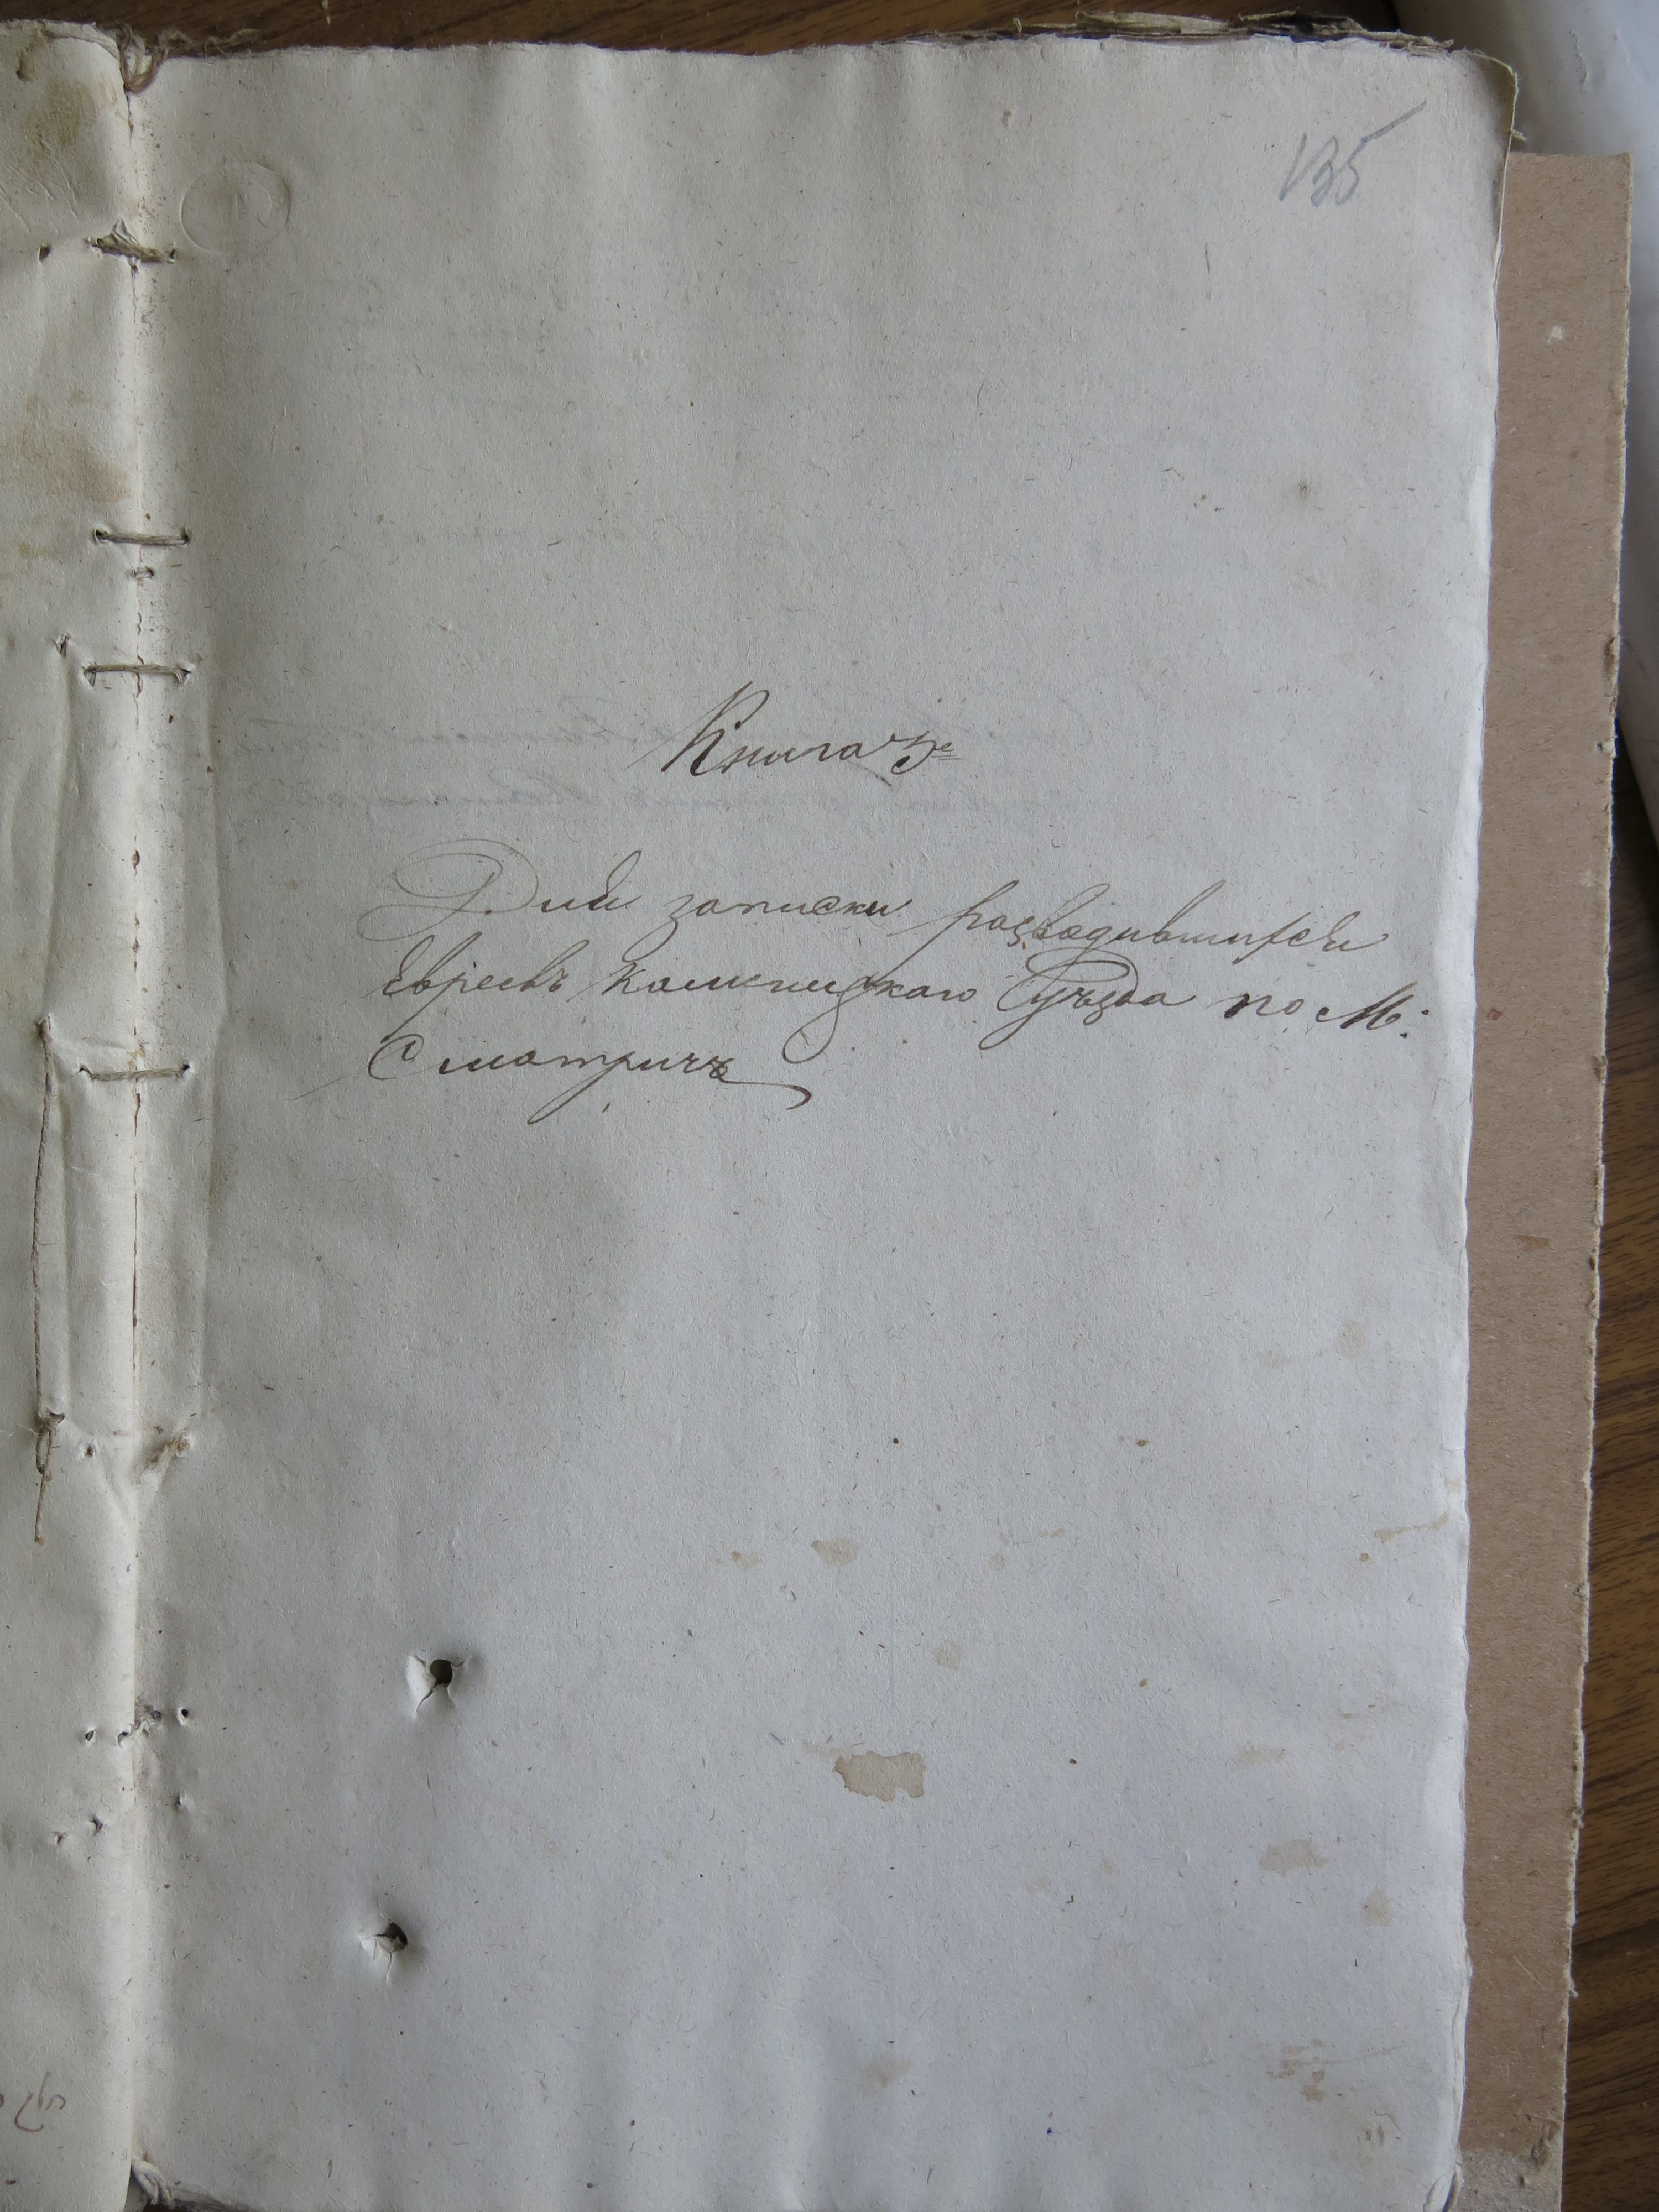 135
Книга
Для записки разводившихся
Евреевъ Каменецкаго Уѣзда по М:
Смотричъ